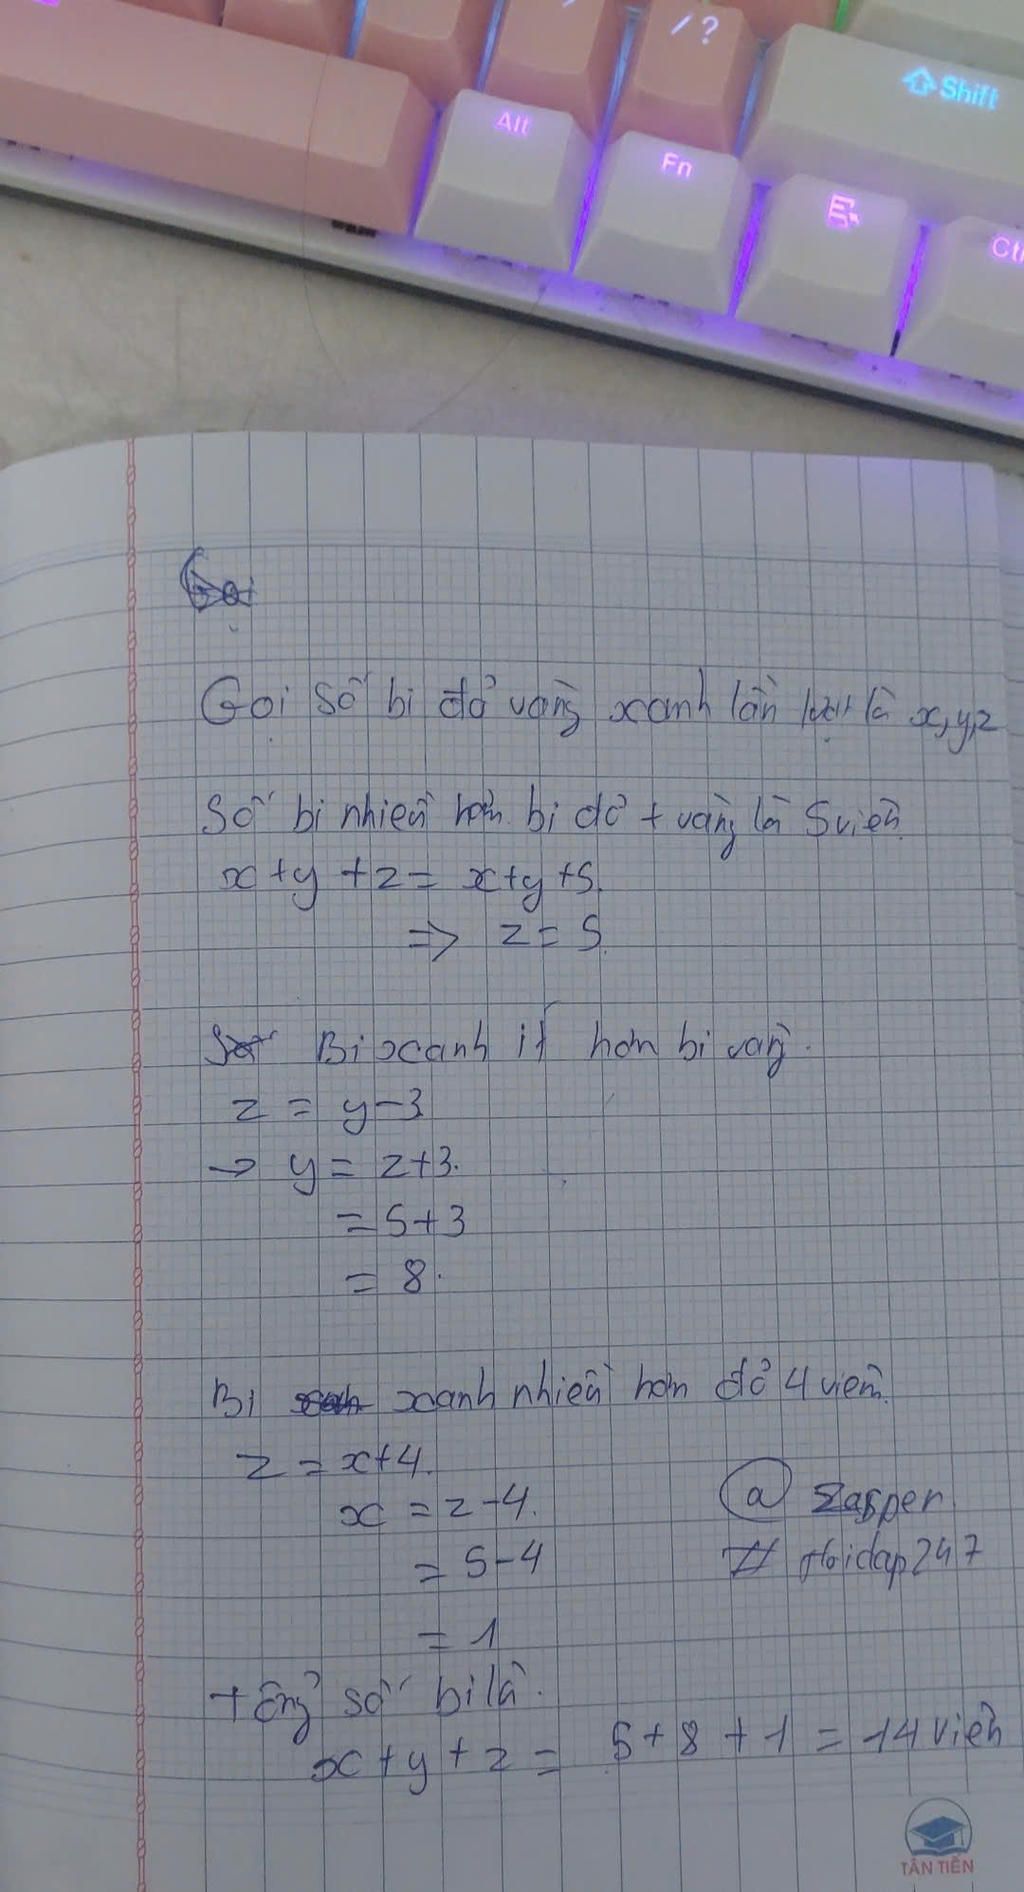 / ?
Shift
Alt
Fn
Ctr
Gọi số bi đỏ vàng xanh lần lượt là x, y, z
Số bi nhiều hơn bi đỏ + vàng là 5 viên
x + y + z = x + y + 5.
=> z = 5
Bi xanh ít hơn bi vàng.
z = y - 3
→ y = z + 3.
= 5 + 3
= 8.
Bi xanh nhiều hơn đỏ 4 viên.
z = x + 4.
x = z - 4.
= 5 - 4
= 1
@ Zasper
# Hoidap247
Tổng số bi là.
x + y + z = 5 + 8 + 1 = 14 viên
TÂN TIẾN